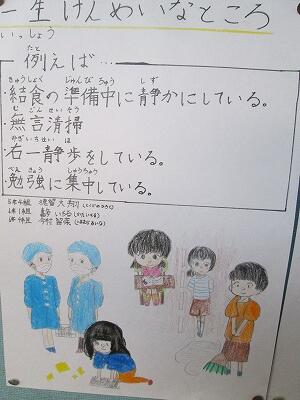 一生けんめいなところ
いっしょう
たと
例えば…
きゅうしょく じゅんびちゅう しず
・給食の準備中に静かにしている。
むごんせいそう
・無言清掃
みぎいちせいほ
・右一静歩をしている。
べんきょう しゅうちゅう
・勉強に集中している。